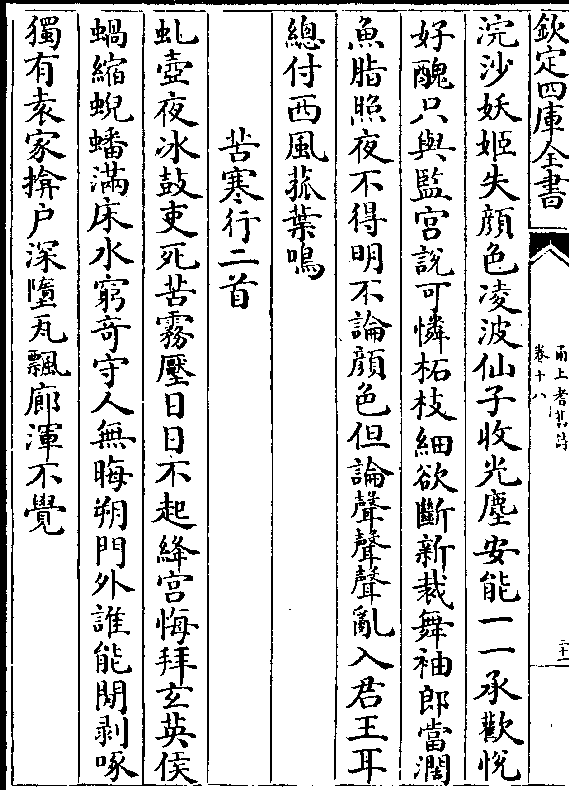 欽定四庫全書
甬上耆舊詩
卷十八
浣沙妖姬失顔色凌波仙子收光塵安能一一承歡悦
好醜只與監宫說可憐柘枝細欲斷新裁舞袖郎當濶
魚脂照夜不得明不論顔色但論聲聲聲亂入君王耳
總付西風菰葉鳴
苦寒行二首
虬壺夜冰鼓吏死苦霧壓日日不起絳宫悔拜玄英侯
蝸縮蜺蟠滿床水窮奇守人無晦朔門外誰能閒剥啄
獨有袁家揜户深墮瓦飄廊渾不覺